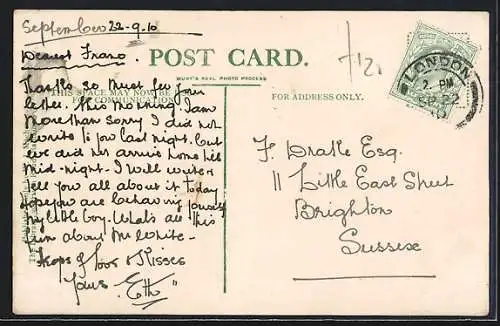 September 22-9-10
Dearest Frank.
POST CARD.
WURT'S REAL PHOTO PROCESS
THIS SPACE MAY NOW BE
FOR COMMUNICATION
FOR ADDRESS ONLY.
Thanks so much for your
letter. This morning. I am
more than sorry I did not
write to you last night. but
we did not arrive home till
mid-night. I will write &
tell you all about it today
hope you are behaving yourself
my little boy. What's all this
about Mr White-
Heaps of love & Kisses
Yours "Eth"
7/2
LONDON
2. PM
SP 22
10
F. Dratte Esq.
11 Little East Street
Brighton
Sussex